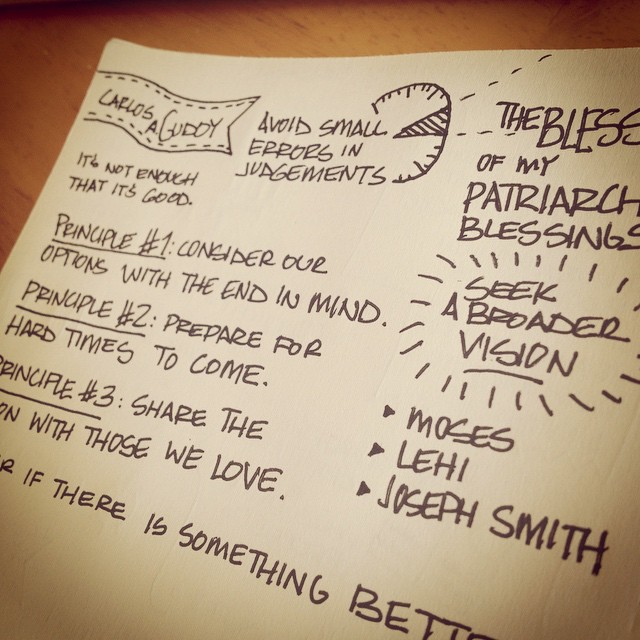 CARLOS
A. GODOY
IT'S NOT ENOUGH
THAT IT'S GOOD.
AVOID SMALL
ERRORS IN
JUDGEMENTS
PRINCIPLE #1: CONSIDER OUR
OPTIONS WITH THE END IN MIND.
PRINCIPLE #2: PREPARE FOR
HARD TIMES TO COME.
PRINCIPLE #3: SHARE THE
WITH THOSE WE LOVE.
IF THERE IS SOMETHING
THE
OF MY
SEEK
A BROADER
VISION
▸ MOSES
▸ LEHI
▸ JOSEPH SMITH